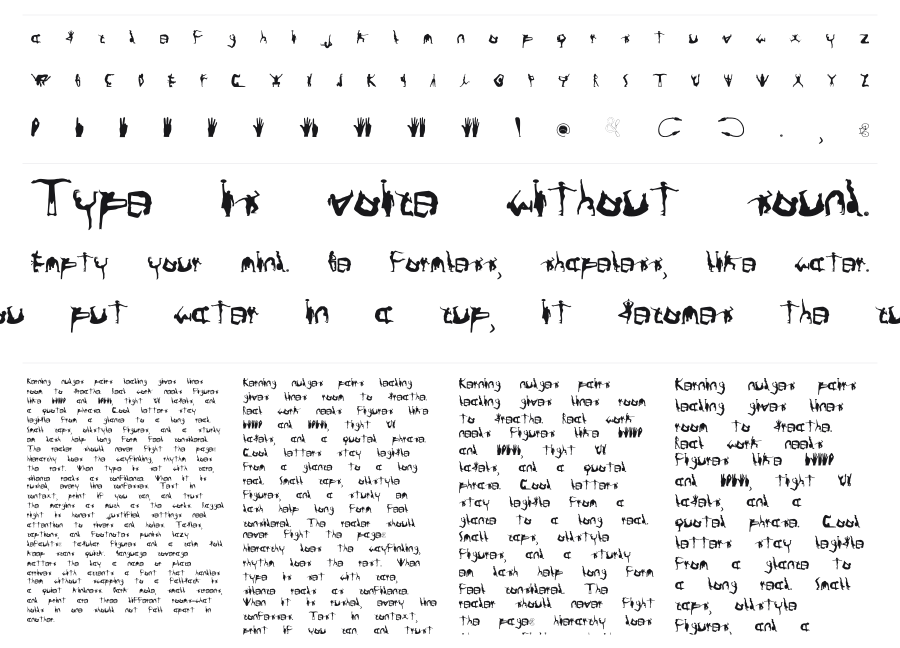 a b c d e f g h i j k l m n o p q r s t u v w x y z
A B C D E F G H I J K L M N O P Q R S T U V W X Y Z
0 1 2 3 4 5 6 7 8 9 ! ( ) . ,
Type is voice without sound.
Empty your mind. Be formless, shapeless, like water.
put water in a cup, it becomes the
Kerning nudges pairs leading gives lines
room to breathe. Good work needs figures
like and tight UI labels, and
a quotal phrase. Good letters stay
legible from a glance to a long read.
Small caps, oldstyle figures, and a sturdy
em dash help long form feel considered.
The reader should never fight the page:
hierarchy does the wayfinding, rhythm does
the rest. When type is set with care,
silence reads as confidence. When it is
rushed, every line confesses. Test in
context, print if you can, and trust
the margins as much as the words. Ragged
right is honest justified settings need
attention to rivers and holes. Tables,
captions, and footnotes punish lazy
defaults: tabular figures and a calm
keep scans quick. Language coverage
matters the day a name or place
arrives with accents a font that handles
them without swapping to a fallback is
a quiet kindness Dark mode, small screens,
and print are three different rooms—what
holds in one should not fall apart in
another.
Kerning nudges pairs leading
gives lines room to breathe.
Good work needs figures like
and tight UI
labels, and a quotal phrase.
Good letters stay legible
from a glance to a long
read. Small caps, oldstyle
figures, and a sturdy em
dash help long form feel
considered. The reader should
never fight the page:
hierarchy does the wayfinding,
rhythm does the rest. When
type is set with care,
silence reads as confidence.
When it is rushed, every line
confesses. Test in context,
print if you can and trust
Kerning nudges pairs
leading gives lines room
to breathe. Good work
needs figures like
and tight UI
labels, and a quotal
phrase. Good letters
stay legible from a
glance to a long read.
Small caps, oldstyle
figures, and a sturdy
em dash help long form
feel considered. The
reader should never fight
the page: hierarchy does
Kerning nudges pairs
leading gives lines
room to breathe.
Good work needs
figures like
and tight UI
labels, and a
quotal phrase. Good
letters stay legible
from a glance to
a long read. Small
caps, oldstyle
figures, and a